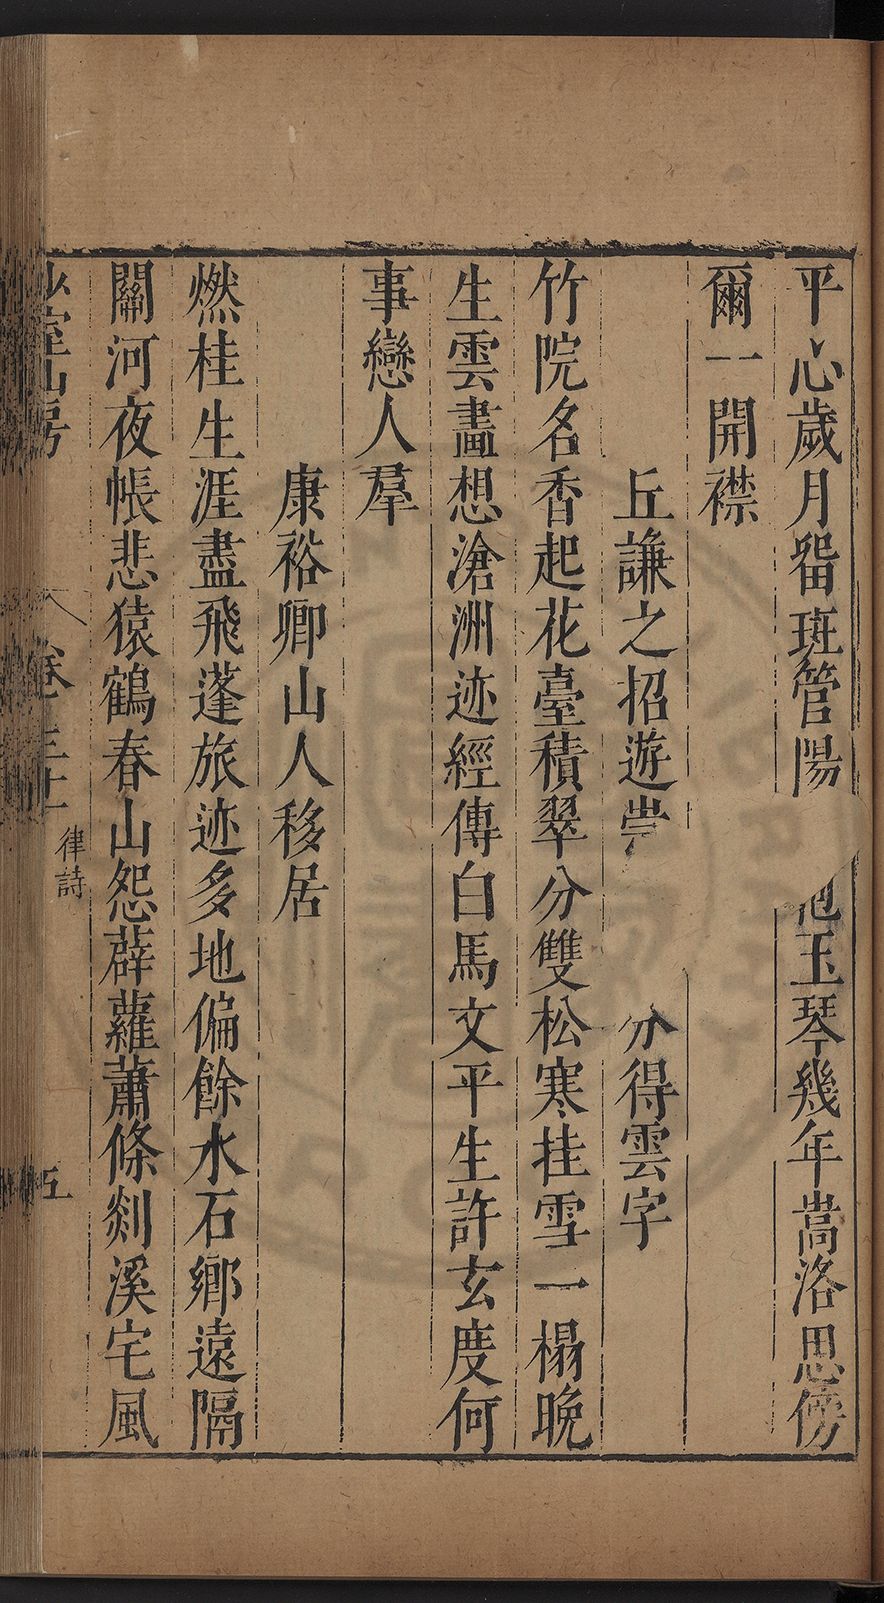 平心歲月畱斑管陽玉琴幾年嵩洛思傍
爾一開襟
丘謙之招遊分得雲字
竹院名香起花臺積翠分雙松寒挂雪一榻晚
生雲畫想滄洲迹經傳白馬文平生許玄度何
事戀人羣
康裕卿山人移居
燃桂生涯盡飛蓬旅迹多地偏餘水石鄉遠隔
關河夜帳悲猿鶴春山怨薜蘿蕭條剡溪宅風
室山房 卷三十 律詩 五